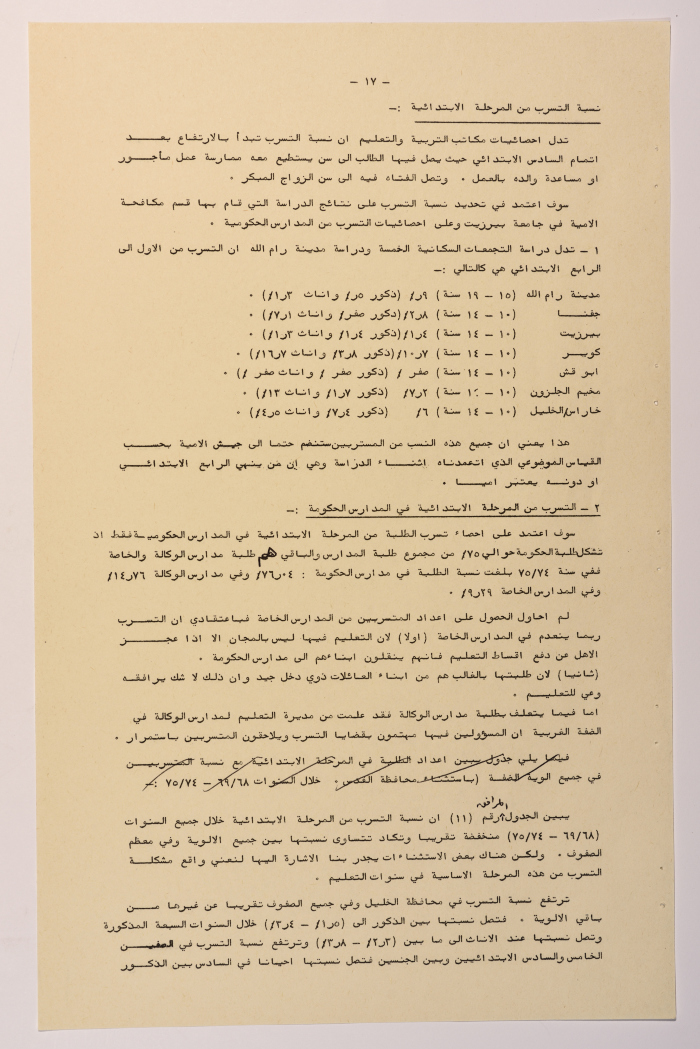 - ١٧ -
نسبة التسرب من المرحلة الابتدائية :-
تدل احصائيات مكاتب التربية والتعليم ان نسبة التسرب تبدأ بالارتفاع بعد
اتمام السادس الابتدائي حيث يصل فيها الطالب الى سن يستطيع معه ممارسة عمل مأجور
او مساعدة والده بالعمل . وتصل الفتاه فيه الى سن الزواج المبكر .
سوف اعتمد في تحديد نسبة التسرب على نتائج الدراسة التي قام بها قسم مكافحة
الامية في جامعة بيرزيت وعلى احصائيات التسرب من المدارس الحكومية .
١ - تدل دراسة التجمعات السكانية الخمسة ودراسة مدينة رام الله ان التسرب من الاول الى
الرابع الابتدائي هي كالتالي :-
مدينة رام الله (١٥ - ١٩ سنة) ٩ر٪ (ذكور ٥ر٪ واناث ٣ر١٪) .
جفنا (١٠ - ١٤ سنة) ٨ر٢٪ (ذكور صفر٪ واناث ١ر٧٪) .
بيرزيت (١٠ - ١٤ سنة) ٤ر١٪ (ذكور ٤ر١٪ واناث ٣ر١٪) .
كوبر (١٠ - ١٤ سنة) ٧ر١٠٪ (ذكور ٨ر٣٪ واناث ٧ر١٦٪) .
ابو قش (١٠ - ١٤ سنة) صفر ٪ (ذكور صفر ٪ واناث صفر ٪) .
مخيم الجلزون (١٠ - سنة) ٢ر٧٪ (ذكور ٧ر١٪ واناث ١٣٪) .
خاراس/الخليل (١٠ - ١٤ سنة) ٦٪ (ذكور ٤ر٧٪ واناث ٥ر٤٪) .
هذا يعني ان جميع هذه النسب من المتسربين ستنضم حتما الى جيش الامية بحسب
القياس الموضوعي الذي اتعمدناه اثناء الدراسة وهي إن مَن ينهي الرابع الابتدائي
او دونه يعتبر اميا .
٢ - التسرب من المرحلة الابتدائية في المدارس الحكومة :-
سوف اعتمد على احصاء تسرب الطلبة من المرحلة الابتدائية في المدارس الحكومية فقط اذ
تشكل طلبة الحكومة حوالي ٧٥٪ من مجموع طلبة المدارس والباقي هم طلبة مدارس الوكالة والخاصة
ففي سنة ٧٥/٧٤ بلغت نسبة الطلبة في مدارس الحكومة : ٠٤ر٧٦٪ وفي مدارس الوكالة ٧٦ر١٤٪
وفي المدارس الخاصة ٢٩ر٩٪ .
لم احاول الحصول على اعداد المتسربين من المدارس الخاصة فباعتقادي ان التسرب
ربما ينعدم في المدارس الخاصة (اولا) لان التعليم فيها ليس بالمجان الا اذا عجز
الاهل عن دفع اقساط التعليم فانهم ينقلون ابناءهم الى مدارس الحكومة .
(ثانيا) لان طلبتها بالغالب هم من ابناء العائلات ذوي دخل جيد وان ذلك لا شك يرافقه
وعي للتعليم .
اما فيما يتعلف بطلبة مدارس الوكالة فقد علمت من مديرة التعليم لمدارس الوكالة في
الضفة الغربية ان المسؤولين فيها مهتمون بقضايا التسرب ويلاحقون المتسربين باستمرار .
فيما يلي جدول يبين اعداد الطلبة في المرحلة الابتدائية مع نسبة المتسربين
في جميع الوية الضفة (باستثناء محافظة القدس . خلال السنوات ٦٩/٦٨ - ٧٥/٧٤ :-
المرافق
يبين الجدول رقم (١١) ان نسبة التسرب من المرحلة الابتدائية خلال جميع السنوات
(٦٩/٦٨ - ٧٥/٧٤) منخفضة تقريبا وتكاد تتساوى نسبتها بين جميع الالوية وفي معظم
الصفوف . ولكن هناك بعض الاستثناءات يجدر بنا الاشارة اليها لنعني واقع مشكلة
التسرب من هذه المرحلة الاساسية في سنوات التعليم .
ترتفع نسبة التسرب في محافظة الخليل وفي جميع الصفوف تقريبا عن غيرها من
باقي الالوية . فتصل نسبتها بين الذكور الى (٥ر١٪ - ٤ر٣٪) خلال السنوات السبعة المذكورة
وتصل نسبتها عند الاناث الى ما بين (٣ر٢٪ - ٨ر٣٪) وترتفع نسبة التسرب في الصفين
الخامس والسادس الابتدائيين وبين الجنسين فتصل نسبتها احيانا في السادس بين الذكور